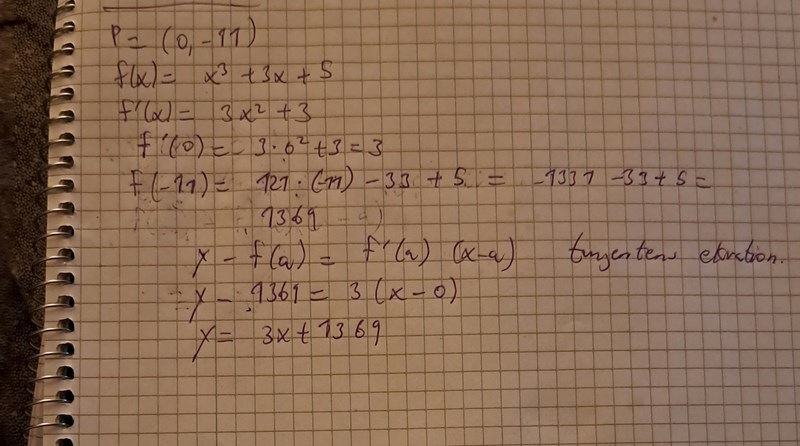 P = (0, -11)
f(x) = x³ + 3x + 5
f'(x) = 3x² + 3
f'(0) = 3·0² + 3 = 3
f(-11) = 121·(-11) - 33 + 5 = -1331 - 33 + 5 =
1369
y - f(a) = f'(a) (x-a) tangentens ekvation.
y - 1369 = 3 (x - 0)
y = 3x + 1369